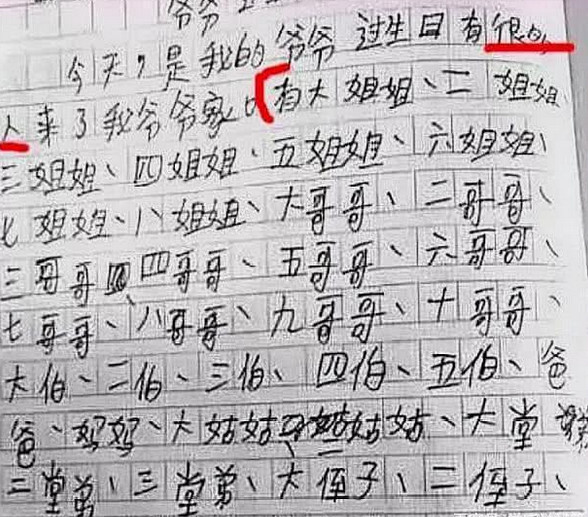 爷爷
今天,是我的爷爷过生日有很多
人来了我爷爷家。有大姐姐、二姐姐、
三姐姐、四姐姐、五姐姐、六姐姐、
七姐姐、八姐姐、大哥哥、二哥哥、
三哥哥四哥哥、五哥哥、六哥哥、
七哥哥、八哥哥、九哥哥、十哥哥、
大伯、二伯、三伯、四伯、五伯、爸
爸、妈妈、大姑姑、二姑姑、大堂弟
二堂弟、三堂弟、大侄子、二侄子、